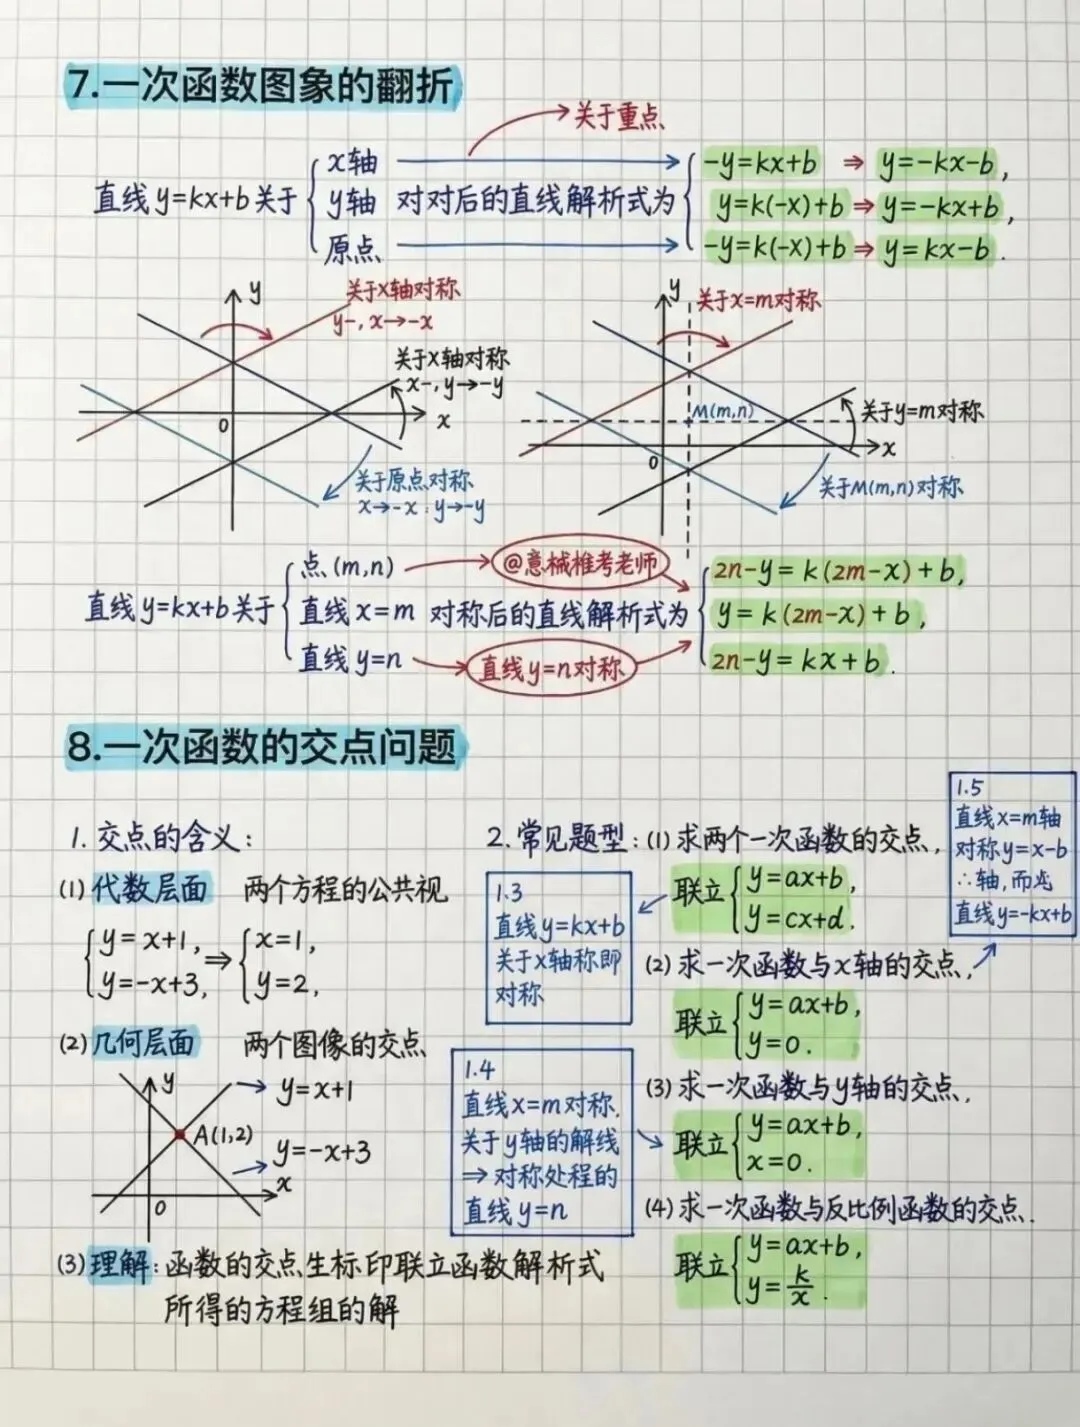 7.一次函数图象的翻折
关于重点
直线y=kx+b关于
x轴
y轴
原点
对对后的直线解析式为
-y=kx+b ⇒ y=-kx-b,
y=k(-x)+b ⇒ y=-kx+b,
-y=k(-x)+b ⇒ y=kx-b.
y
关于x轴对称
y-, x→-x
关于X轴对称
x-, y→-y
x
0
关于原点对称
x→-x:y→-y
y
关于x=m对称
M(m,n)
关于y=m对称
x
0
关于M(m,n)对称
直线y=kx+b关于
点(m,n)
直线x=m
直线y=n
@意械椎考老师
对称后的直线解析式为
直线y=n对称
2n-y=k(2m-x)+b,
y=k(2m-x)+b,
2n-y=kx+b.
8.一次函数的交点问题
1.交点的含义:
(1)代数层面 两个方程的公共视
y=x+1,
y=-x+3,
⇒
x=1,
y=2,
(2)几何层面 两个图像的交点
y
y=x+1
A(1,2)
y=-x+3
x
0
(3)理解:函数的交点生标印联立函数解析式
所得的方程组的解
2.常见题型:(1)求两个一次函数的交点,
联立
y=ax+b,
y=cx+d.
(2)求一次函数与x轴的交点,
联立
y=ax+b,
y=0.
(3)求一次函数与y轴的交点,
联立
y=ax+b,
x=0.
(4)求一次函数与反比例函数的交点.
联立
y=ax+b,
y=k/x.
1.3
直线y=kx+b
关于x轴称即
对称
1.4
直线x=m对称,
关于y轴的解线
⇒对称处程的
直线y=n
1.5
直线x=m轴
对称y=x-b
∴轴,而
直线y=-kx+b